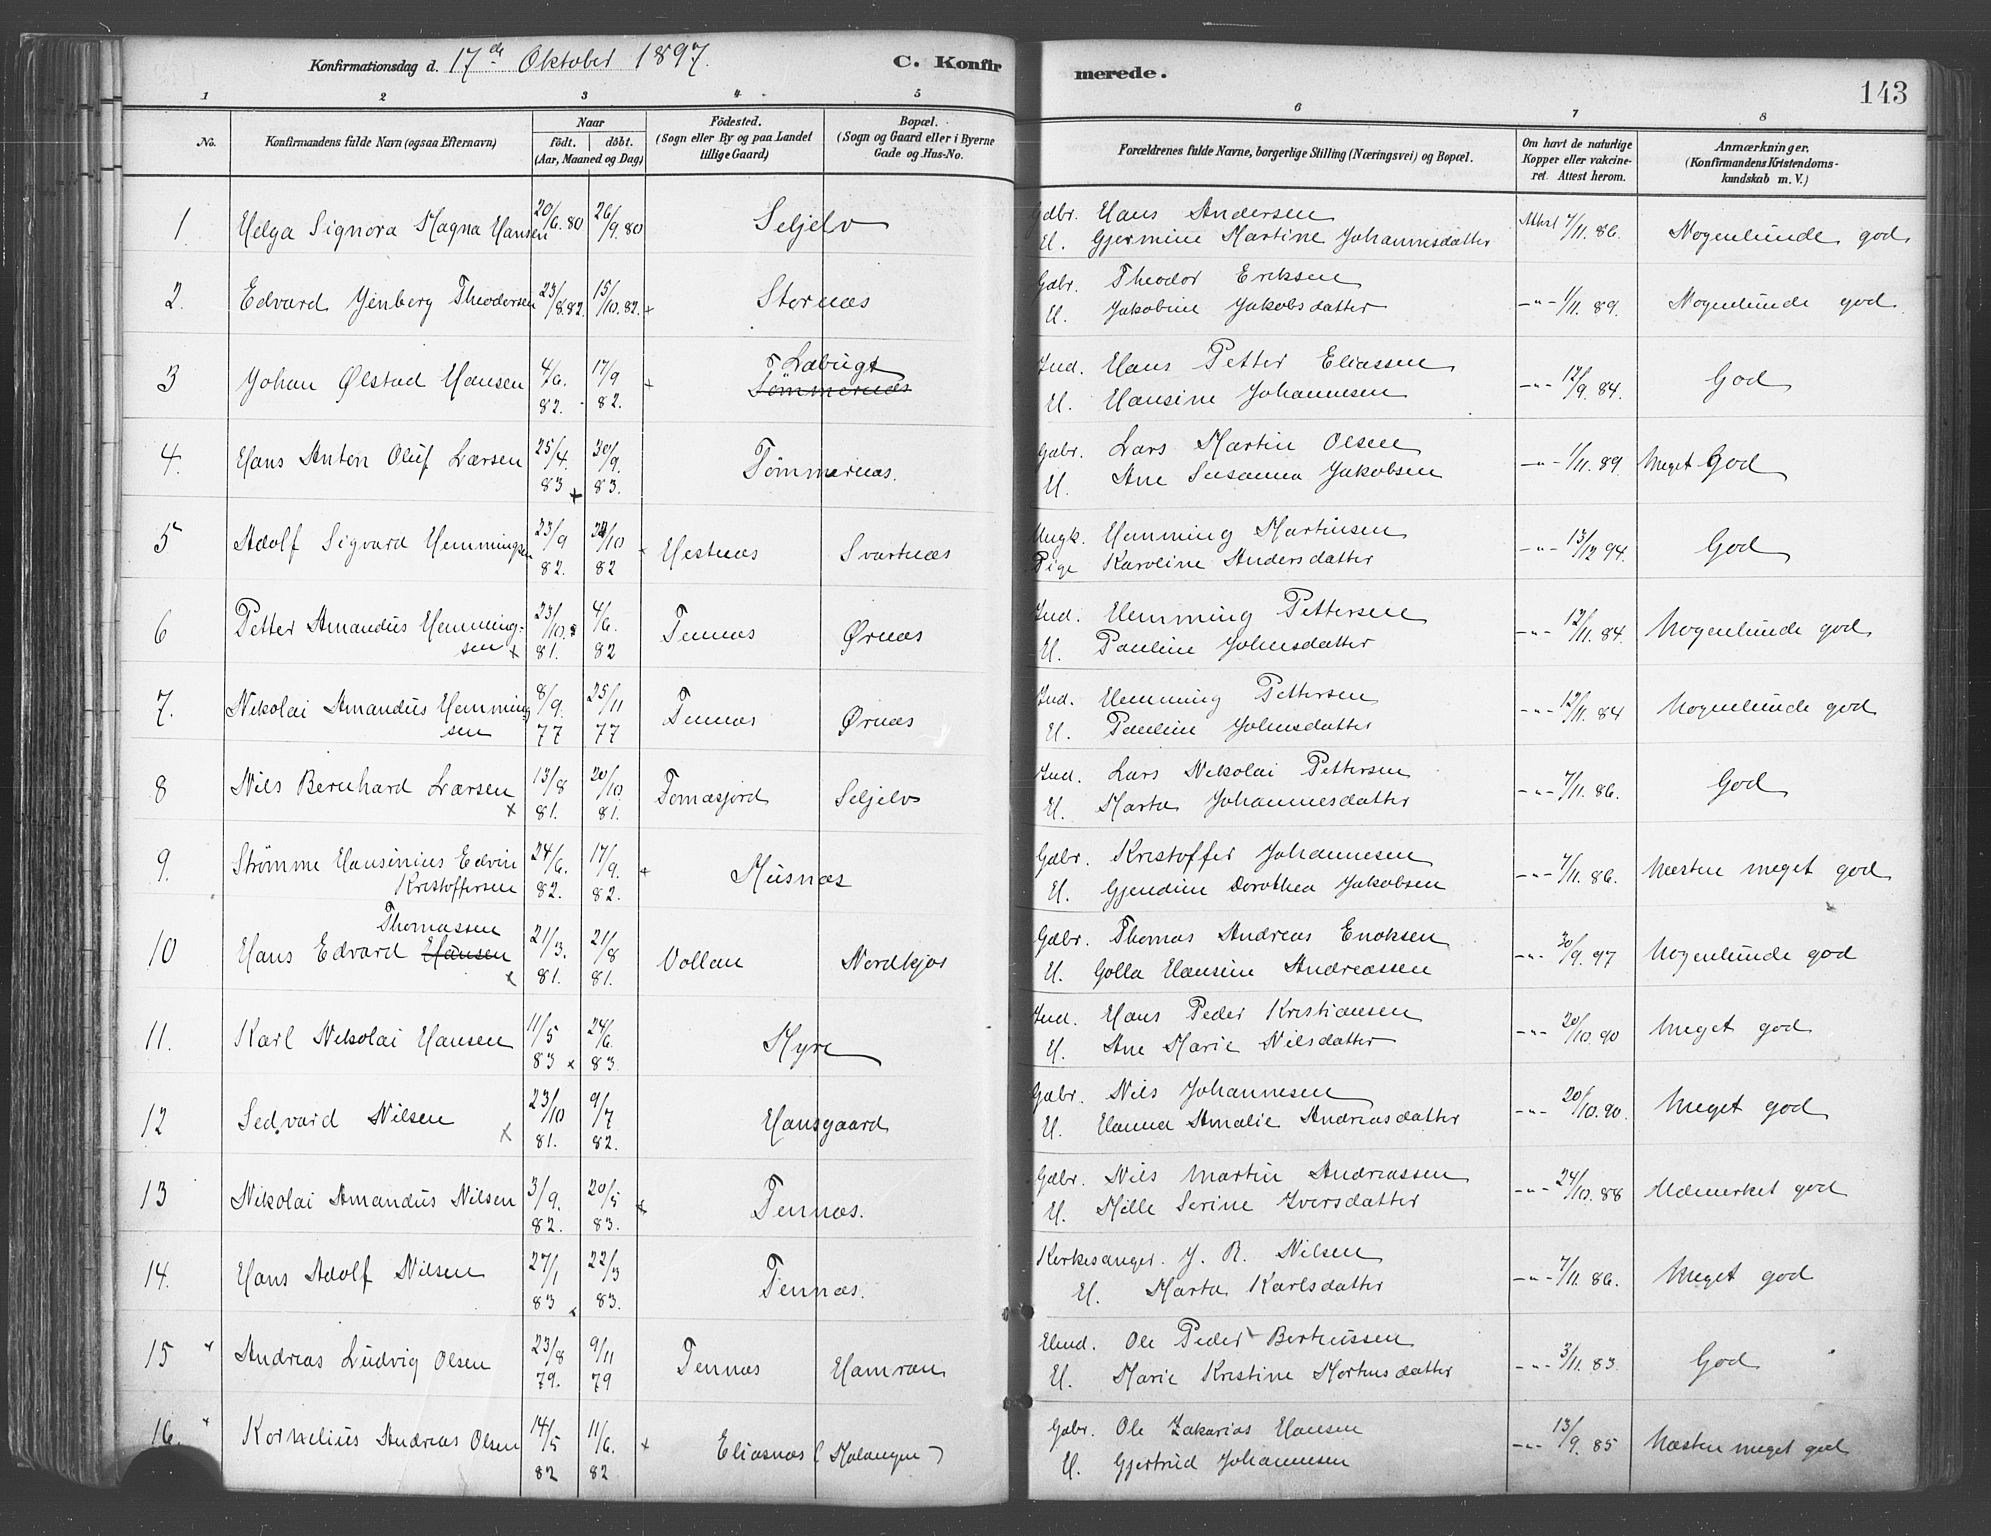 Konfirmationsdag d. 17de Oktober 1897. C. Konfirmerede. 143
1 2 3 4 5 6 7 8
No. Konfirmandens fulde Navn (ogsaa Efternavn) Naar födt. döbt. (Aar, Maaned og Dag) Födested. (Sogn eller By og paa Landet tillige Gaard) Bopæl. (Sogn og Gaard eller i Byerne Gade og Hus-No. Forældrenes fulde Navne, borgerlige Stilling (Næringsvei) og Bopæl. Om havt de naturlige Kopper eller vakcineret. Attest herom. Anmærkninger. (Konfirmandens Kristendomskundskab m. V.)
1 Helga Signora Magna Hansen 20/6. 80 26/9. 80 Seljelv Gdbr. Hans Andersen Attest 7/11. 86. Nogenlunde god
H. Gjermine Martine Johannesdatter
2. Edvard Jenberg Theodorsen 23/8. 82. 15/10. 82. + Stornæs Gdbr. Theodor Eriksen -"- 1/11. 89. Nogenlunde god
H. Jakobine Jakobsdatter
3 Johan Ølstad Hansen 4/6. 82. 17/9 82. + Tømmernæs Ind. Hans Petter Eliassen -"- 12/9. 84. God
H. Hansine Johannesen
4. Hans Anton Oluf Larsen 25/4. 83 + 30/9. 83. Tømmernæs. Gdbr. Lars Martin Olsen -"- 1/11. 89 Meget God
H. Ane Susanna Jakobsen
5 Adolf Sigvard Hemmingsen 23/9 82. /10 82 Hestnæs Svartnæs Ungk. Hemming Martinsen -"- 13/12 94. God
Pige Karoline Andersdatter
6 Petter Amandus Hemming- 23/10. 81. 4/6. 82 Tennæs Ørnæs Ind. Hemming Pettersen -"- 12/11. 84. Nogenlunde god
sen x H. Pauline Johnsdatter
7. Nikolai Amandus Hemming 8/9. 77 25/11 77 Tennæs Ørnæs Ind. Hemming Pettersen -"- 12/11. 84 Nogenlunde god
sen H. Pauline Johnsdatter
8 Nils Bernhard Larsen x 13/8 81. 20/10. 81. Tomasjord Seljelv Ind. Lars Nikolai Pettersen -"- 7/11. 86. God
H. Marta Johannesdatter
9. Strømme Hansinius Edvin 24/6. 82. 17/9. 82. + Musnæs Gdbr. Kristoffer Johannesen -"- 7/11. 86. Næsten meget god
Kristoffersen H. Gjendine Dorothea Jakobsen
Thomassen
10 Hans Edvard Hansen x 21/3. 81. 21/8 81. Vollan Nordkjos Gdbr. Thomas Andreas Enoksen -"- 30/9. 97 Nogenlunde god
H. Golla Hansine Andreassen
11. Karl Nikolai Hansen 11/5 83 x 24/6. 83. Myre Ind. Hans Peder Kristiansen -"- 20/10. 90 Meget god
H. Ane Marie Nilsdatter
12 Sedvard Nilsen x 23/10 81. 9/7 82. Hansgaard Gdbr. Nils Johannesen -"- 20/10. 90. Meget god
H. Hanna Amalie Andreasdatter
13 Nikolai Amandus Nilsen 3/9. 82. 20/5 83. x Tennæs. Gdbr. Nils Martin Andreassen -"- 24/10. 88 Udmerket god
H. Mille Serine Iversdatter
14. Hans Adolf Nilsen 27/1 83 x 22/3 83. Tennæs. Kirkesanger. J. R. Nilsen -"- 7/11. 86. Meget god
H. Marta Karlsdatter
15 Andreas Ludvig Olsen 23/8 79. 9/11 79 Tennæs Hamran Ole Peder Berteussen -"- 3/11. 83. God
H. Marie Kristine Mortensdatter
16. Kornelius Andreas Olsen 14/5 82 11/6. 82 + Eliasnæs (Malangen) Gdbr. Ole Zakarias Hansen -"- 13/9. 85 Næsten meget god
H. Gjertrud Johannesen